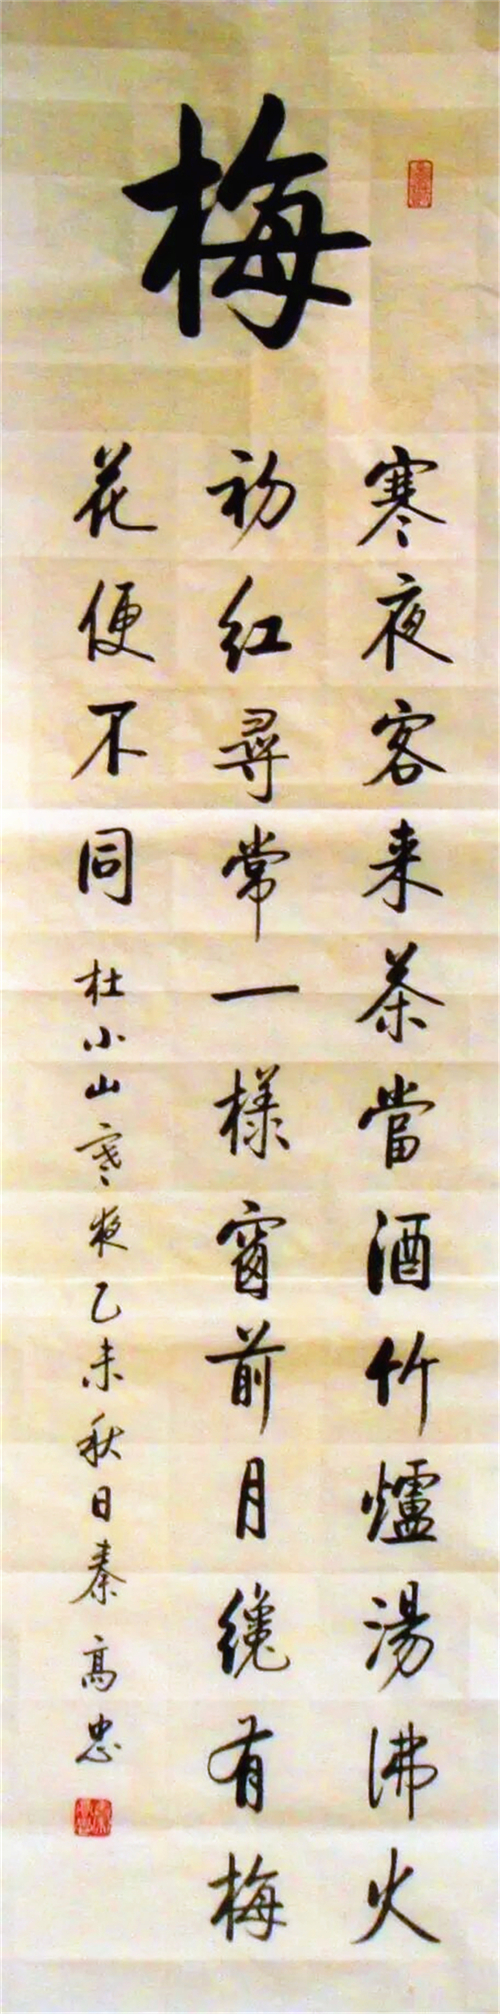 梅
寒夜客来茶當酒竹爐湯沸火
初红尋常一様窗前月纔有梅
花便不同
杜小山寒夜乙未秋日秦高忠